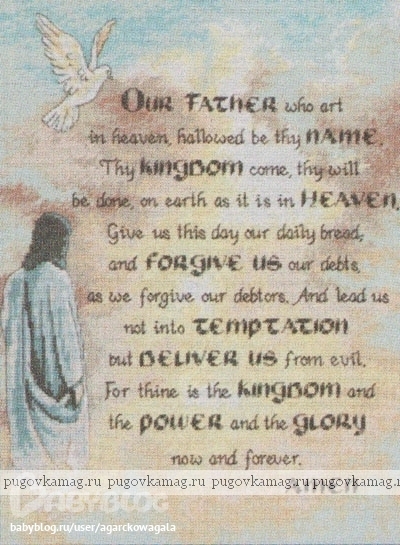 OUR FATHER who art
in heaven, hallowed be thy NAME.
Thy KINGDOM come, thy will
be done, on earth as it is in HEAVEN.
Give us this day our daily bread,
and FORGIVE US our debts,
as we forgive our debtors. And lead us
not into TEMPTATION
but DELIVER US from evil.
For thine is the KINGDOM and
the POWER and the GLORY
now and forever.
pugovkamag.ru pugovkamag.ru pugovkamag.ru pugovkamag.ru
AMEN
BABYBLOG
babyblog.ru/user/agarckowagala